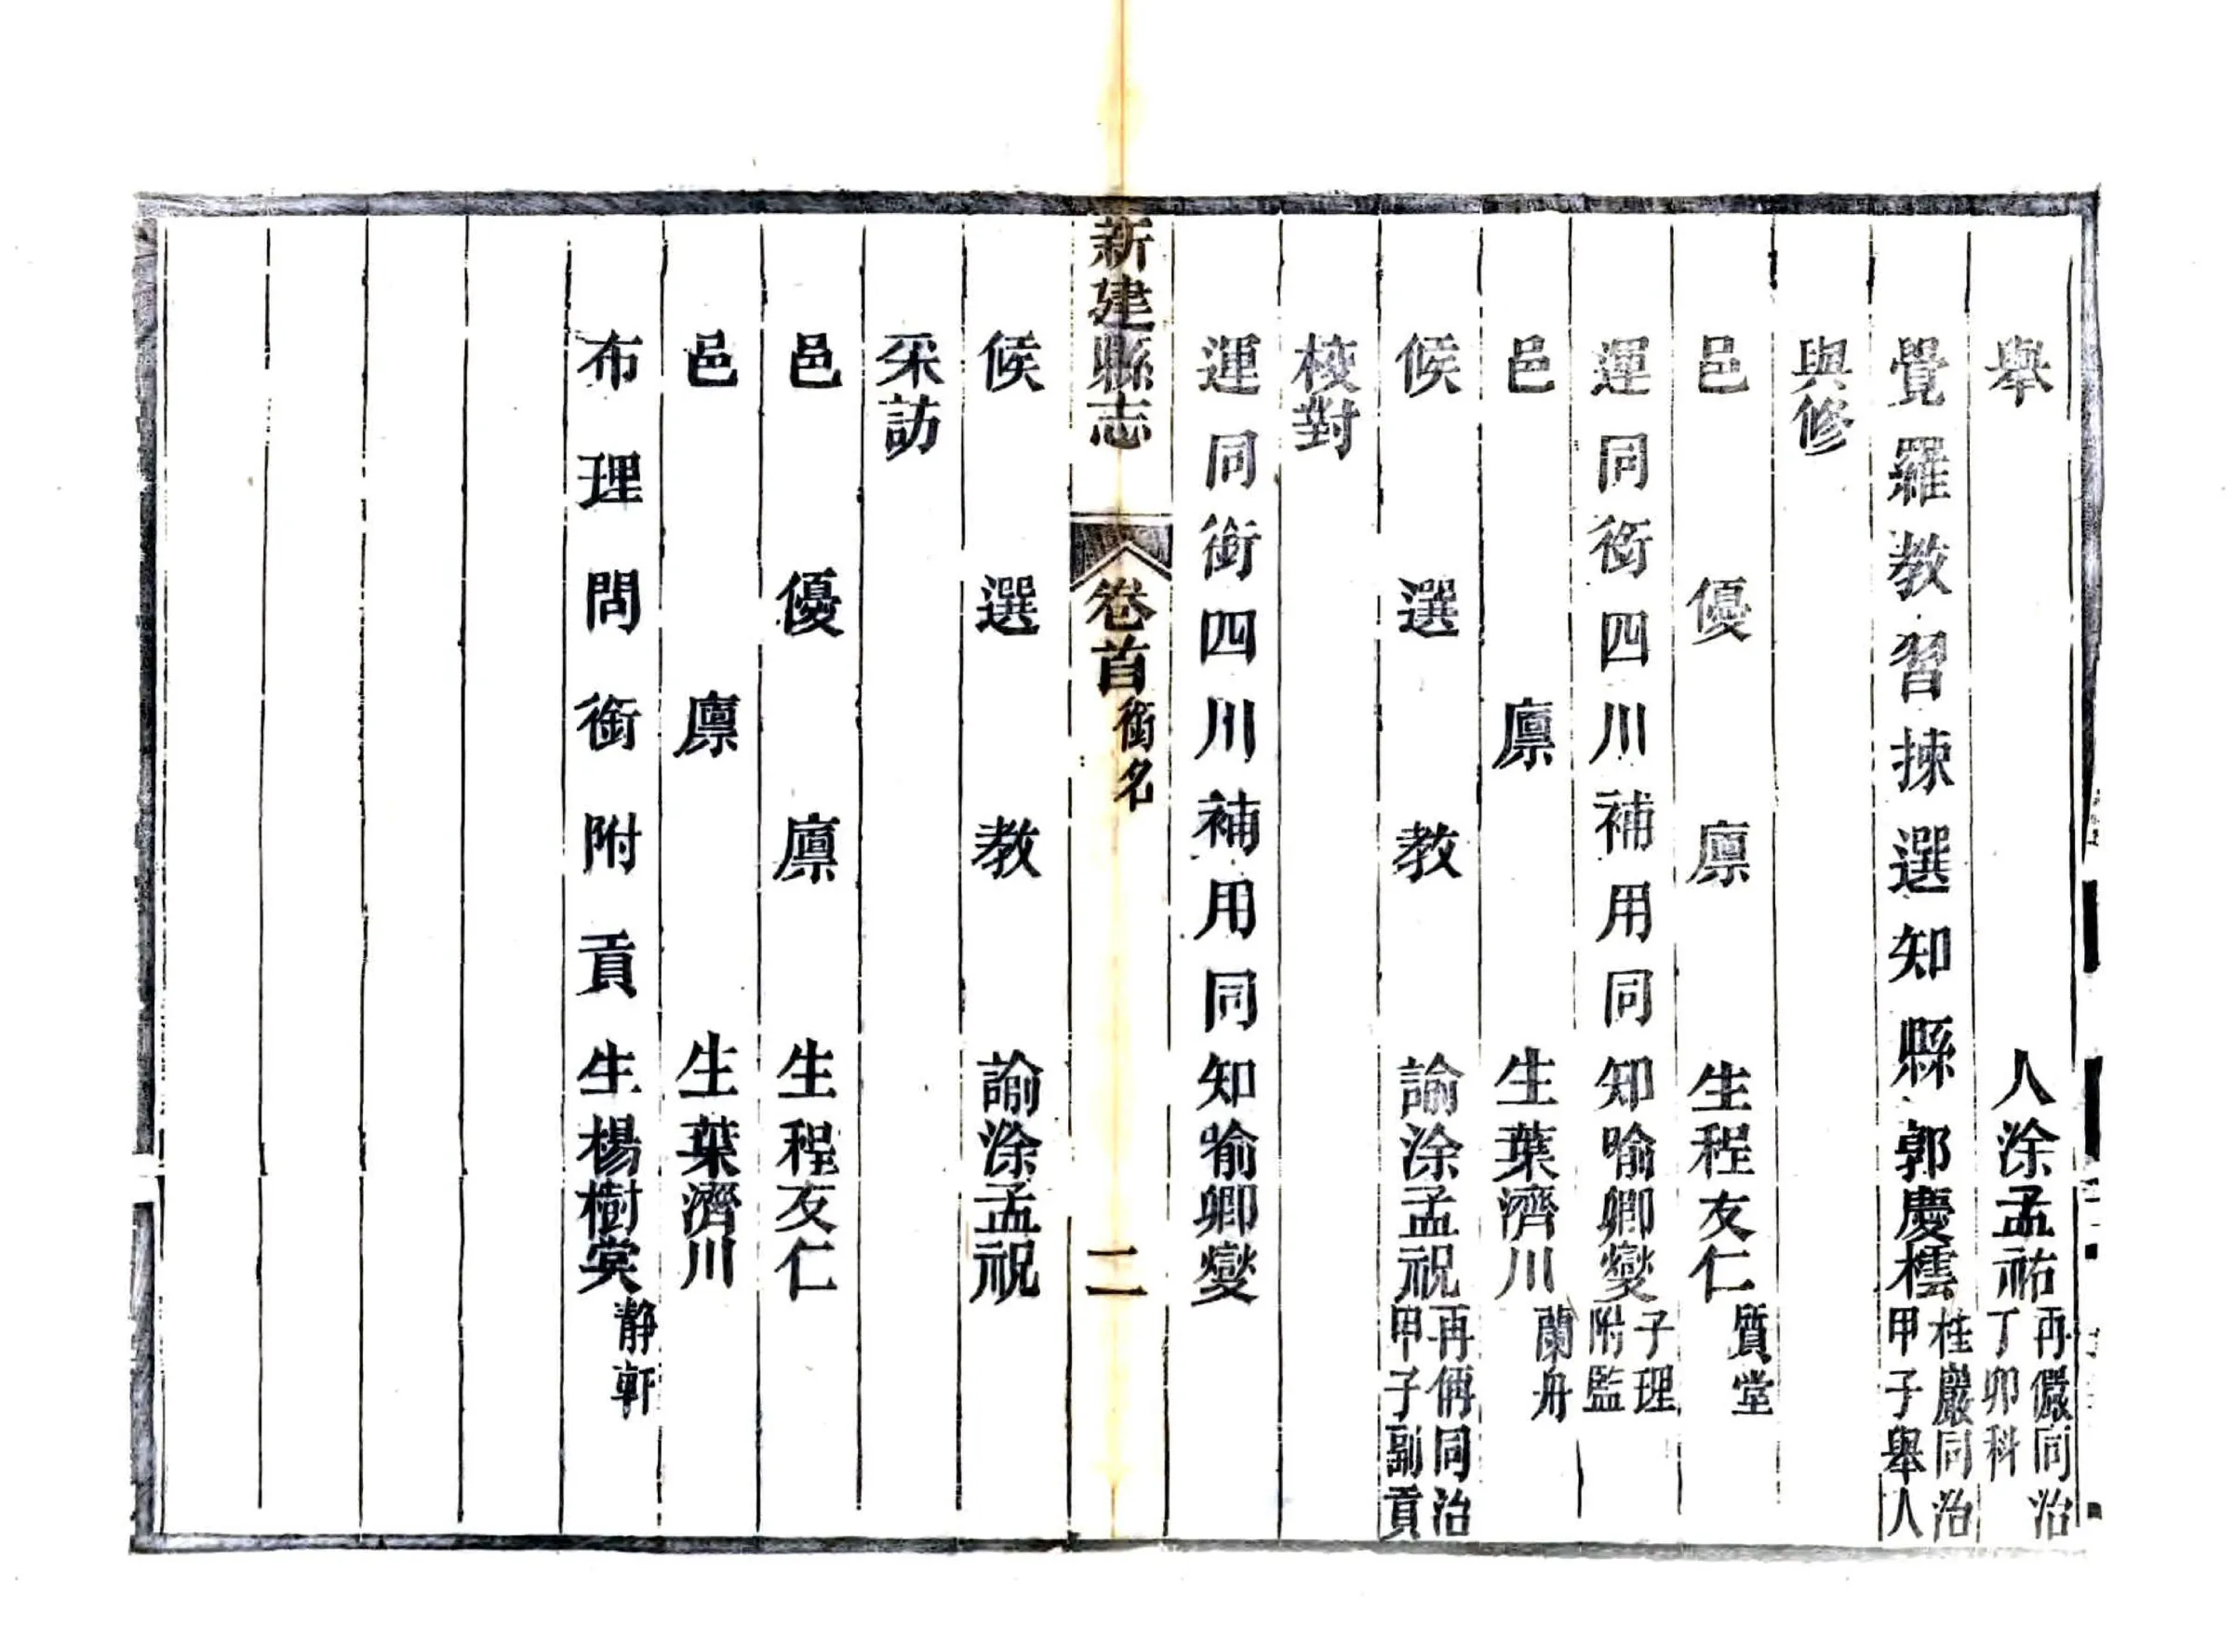 舉人涂孟祐再儼同治丁卯科
覺羅教習揀選知縣郭慶橒桂巖同治甲子舉人
與修
邑優廩生程友仁質堂
運同銜四川補用同知喻卿燮子理附監
邑廩生葉濟川蘭舟
候選教諭涂孟祝再偁同治甲子副貢
校對
運同銜四川補用同知喻卿燮
新建縣志 卷首 銜名 二
候選教諭涂孟祝
采訪
邑優廩生程友仁
邑廩生葉濟川
布理問銜附貢生楊樹棠靜軒